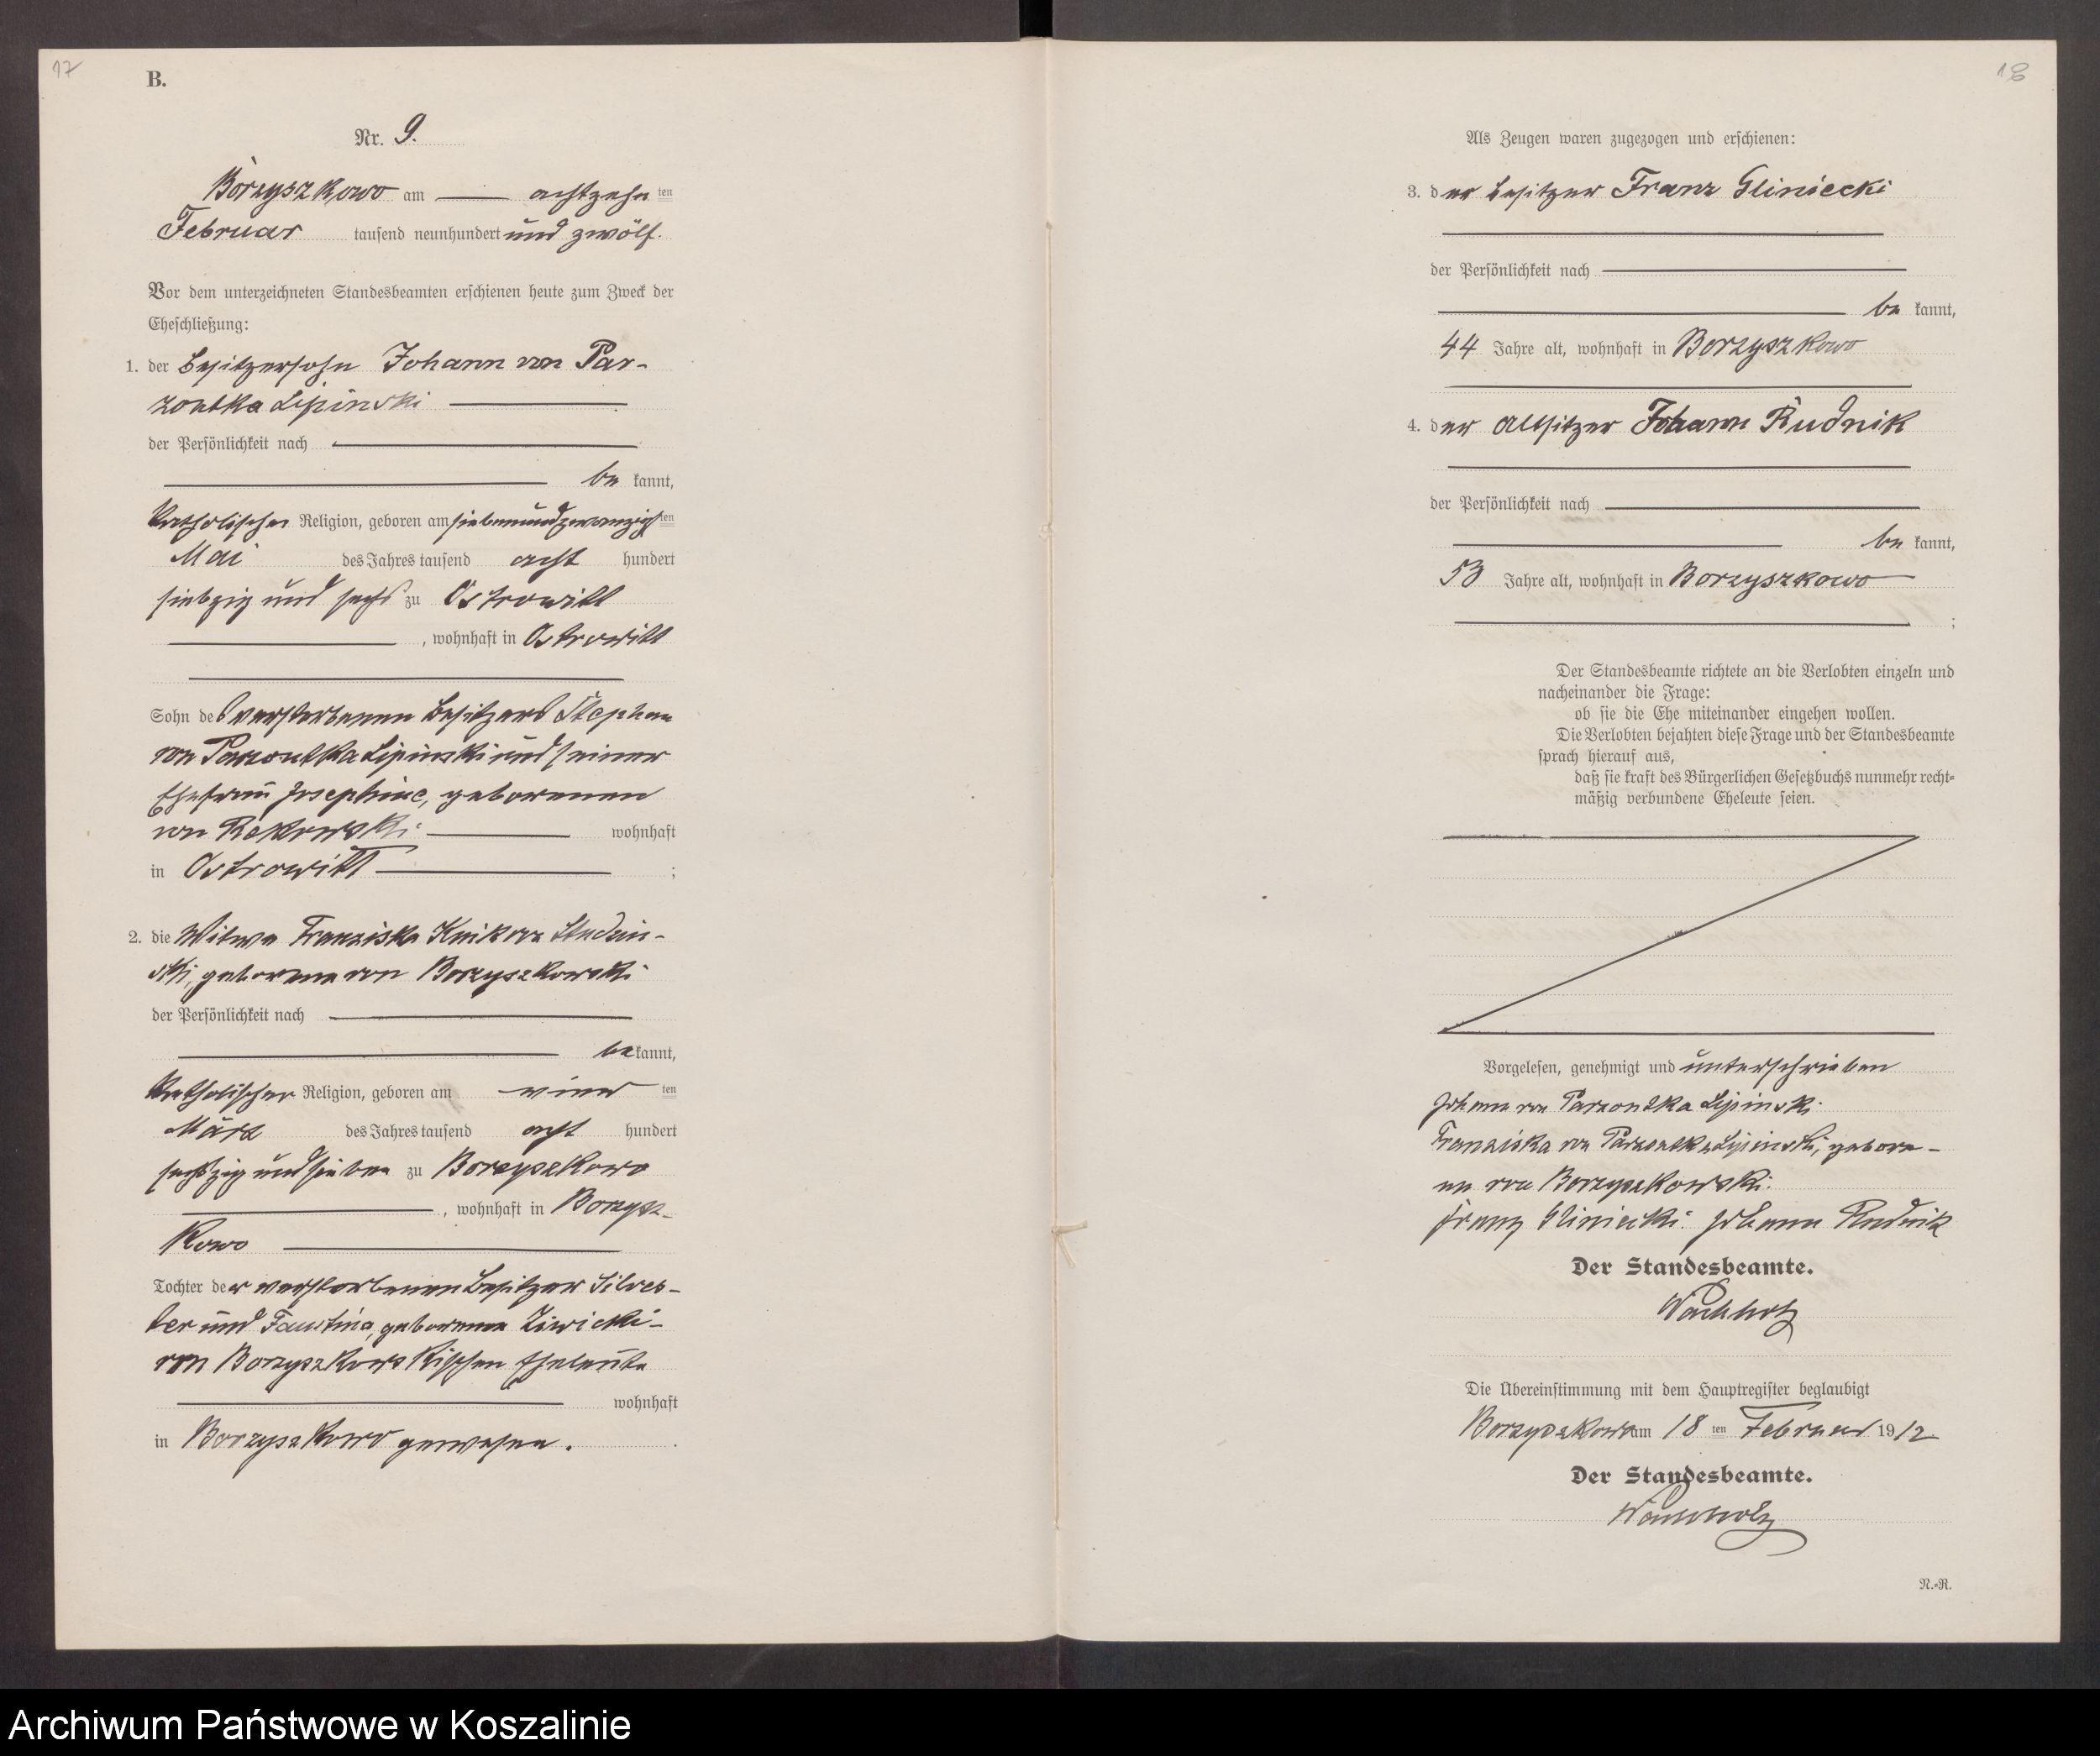 17
B.
Nr. 9.
Borzyszkowo am achtzehn ten
Februar tausend neunhundert und zwölf.
Vor dem unterzeichneten Standesbeamten erschienen heute zum Zweck der
Eheschließung:
1. der Besitzersohn Johann von Par-
zontka Lipinski
der Persönlichkeit nach
be kannt,
katholischer Religion, geboren am siebenundzwanzigsten
Mai des Jahres tausend acht hundert
siebzig und sechs zu Ostrowitt
, wohnhaft in Ostrowitt
Sohn des verstorbenen Besitzers Stephan
von Parzontka Lipinski und seiner
Ehefrau Josephine, geborenen
von Rekowski wohnhaft
in Ostrowitt ;
2. die Witwe Franziska Knik von Studzin-
ski, geborene von Borzyszkowski
der Persönlichkeit nach
be kannt,
katholischer Religion, geboren am vier ten
März des Jahres tausend acht hundert
sechszig und sieben zu Borzyszkowo
, wohnhaft in Borzysz-
kowo
Tochter der verstorbenen Besitzer Silves-
ter und Faustina, geborenen
von Borzyszkowskischen Eheleute
wohnhaft
in Borzyszkowo gewesen.
18
Als Zeugen waren zugezogen und erschienen:
3. der Besitzer Franz Gliniecki
der Persönlichkeit nach
be kannt,
44 Jahre alt, wohnhaft in Borzyszkowo
4. der Altsitzer Johann Rudnik
der Persönlichkeit nach
be kannt,
53 Jahre alt, wohnhaft in Borzyszkowo
;
Der Standesbeamte richtete an die Verlobten einzeln und
nacheinander die Frage:
ob sie die Ehe miteinander eingehen wollen.
Die Verlobten bejahten diese Frage und der Standesbeamte
sprach hierauf aus,
daß sie kraft des Bürgerlichen Gesetzbuchs nunmehr recht-
mäßig verbundene Eheleute seien.
Vorgelesen, genehmigt und unterschrieben
Johann von Parzontka Lipinski
Franziska von Parzontka Lipinski, gebore-
ne von Borzyszkowski.
Franz Gliniecki. Johann Rudnik
Der Standesbeamte.
Wachholz
Die Übereinstimmung mit dem Hauptregister beglaubigt
Borzyszkowo am 18 ten Februar 1912
Der Standesbeamte.
Wachholz
N.-R.
Archiwum Państwowe w Koszalinie